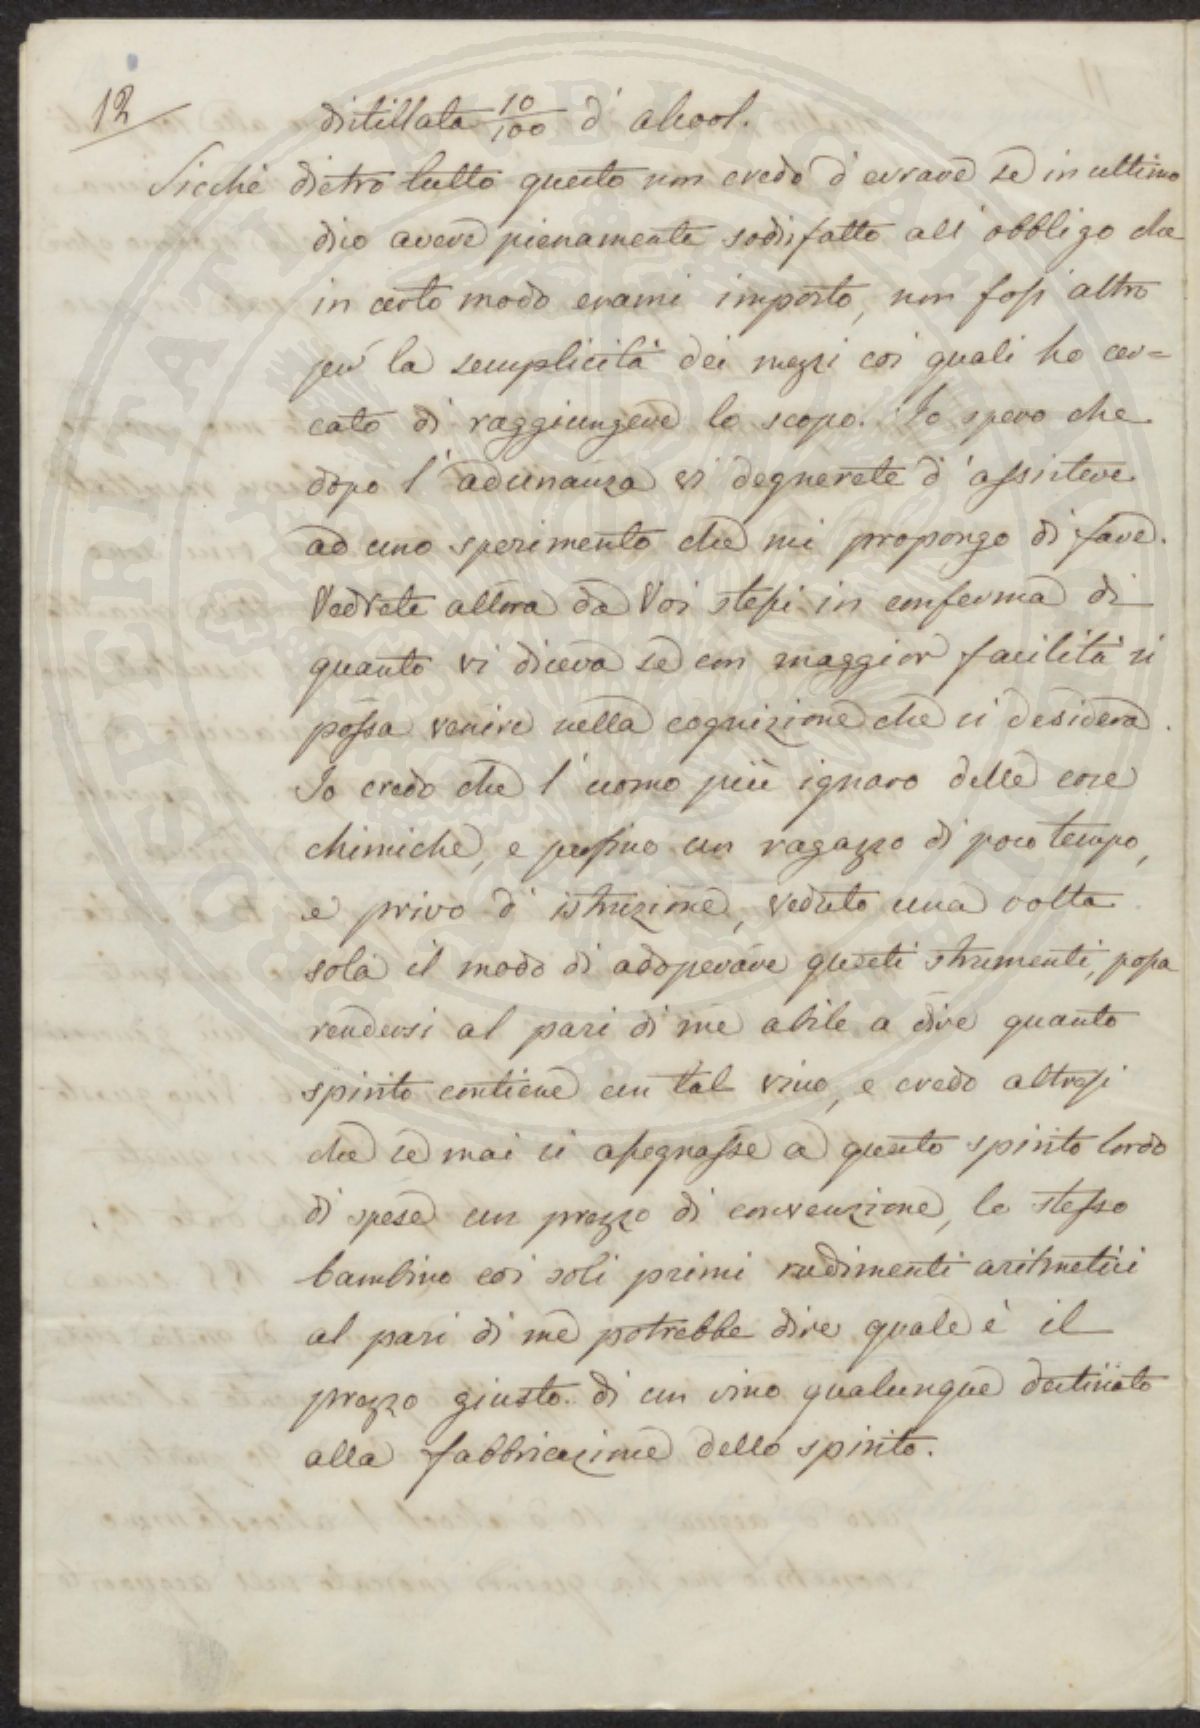 12
distillata 10/100 d' alcool.
Sicchè dietro tutto questo non credo d' errare se in ultimo
dico avere pienamente sodisfatto all' obbligo che
in certo modo erami imposto, non foss' altro
per la semplicità dei mezzi coi quali ho cer=
cato di raggiungere lo scopo. Io spero che
dopo l' adunanza vi degnerete d' assistere
ad uno sperimento che mi propongo di fare.
Vedrete allora da Voi stessi in conferma di
quanto vi diceva se con maggior facilità si
possa venire nella cognizione che si desidera.
Io credo che l' uomo più ignaro delle cose
chimiche, e persino un ragazzo di poco tempo,
e privo d' istruzione, veduto una volta
sola il modo di adoperare questi strumenti, possa
rendersi al pari di me abile a dire quanto
spirito contiene un tal vino, e credo altresì
che se mai si assegnasse a questo spirito lordo
di spese un prezzo di convenzione, lo stesso
bambino coi soli primi rudimenti aritmetici
al pari di me potrebbe dire quale è il
prezzo giusto di un vino qualunque destinato
alla fabbricazione dello spirito.
PROSPERITATI PUBLICAE